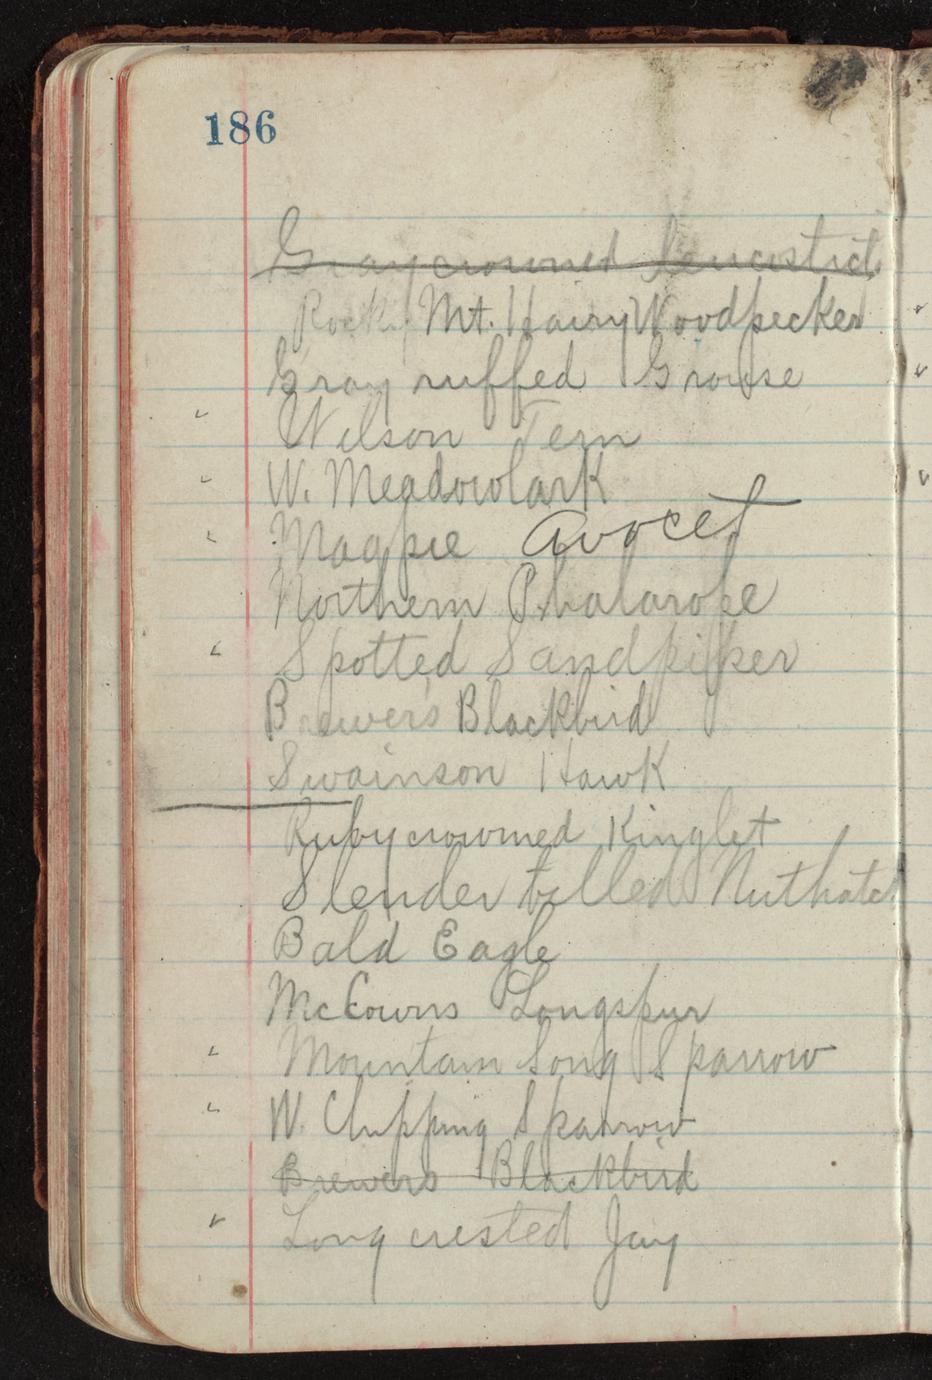 186
Graycrowned Leucosticte
Rocky Mt. Hairy Woodpecker
Gray ruffed Grouse
Wilson Tern
W. Meadowlark
Magpie Avocet
Northern Phalarope
Spotted Sandpiper
Brewers Blackbird
Swainson Hawk
Rubycrowned Kinglet
Slender billed Nuthatch
Bald Eagle
McCowns Longspur
Mountain Song Sparrow
W. Chipping Sparrow
Brewers Blackbird
Long crested Jay